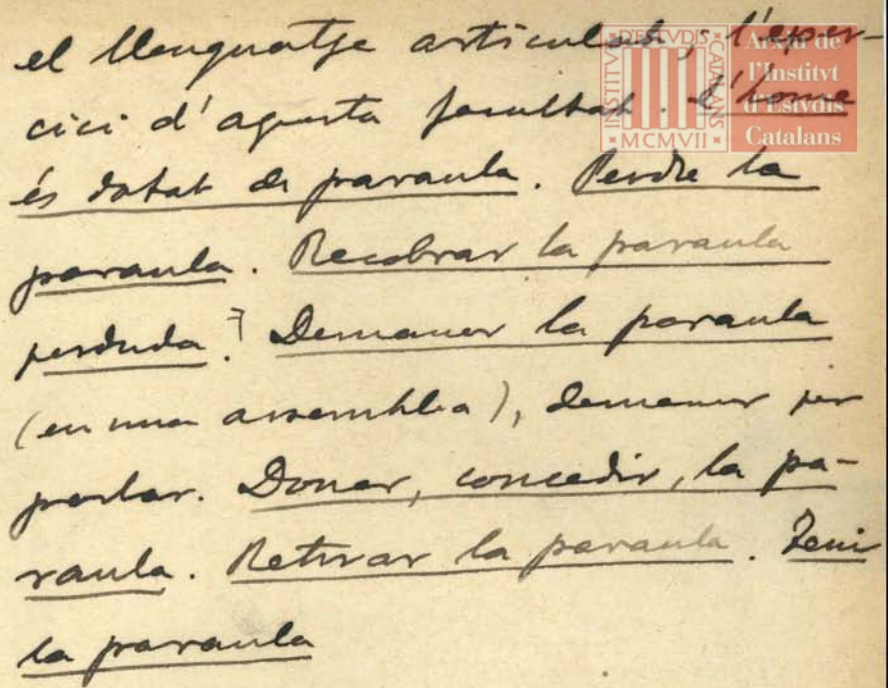 el llenguatge articulat; l'exer-
cici d'aquesta facultat. L'home
és dotat de paraula. Perdre la
paraula. Recobrar la paraula
perduda. Demanar la paraula
(en una assemblea), demanar per
parlar. Donar, concedir, la pa-
raula. Retirar la paraula. Tenir
la paraula
INSTITVT D'ESTVDIS CATALANS
MCMVII
Arxiu de
l'Institvt
d'Estvdis
Catalans